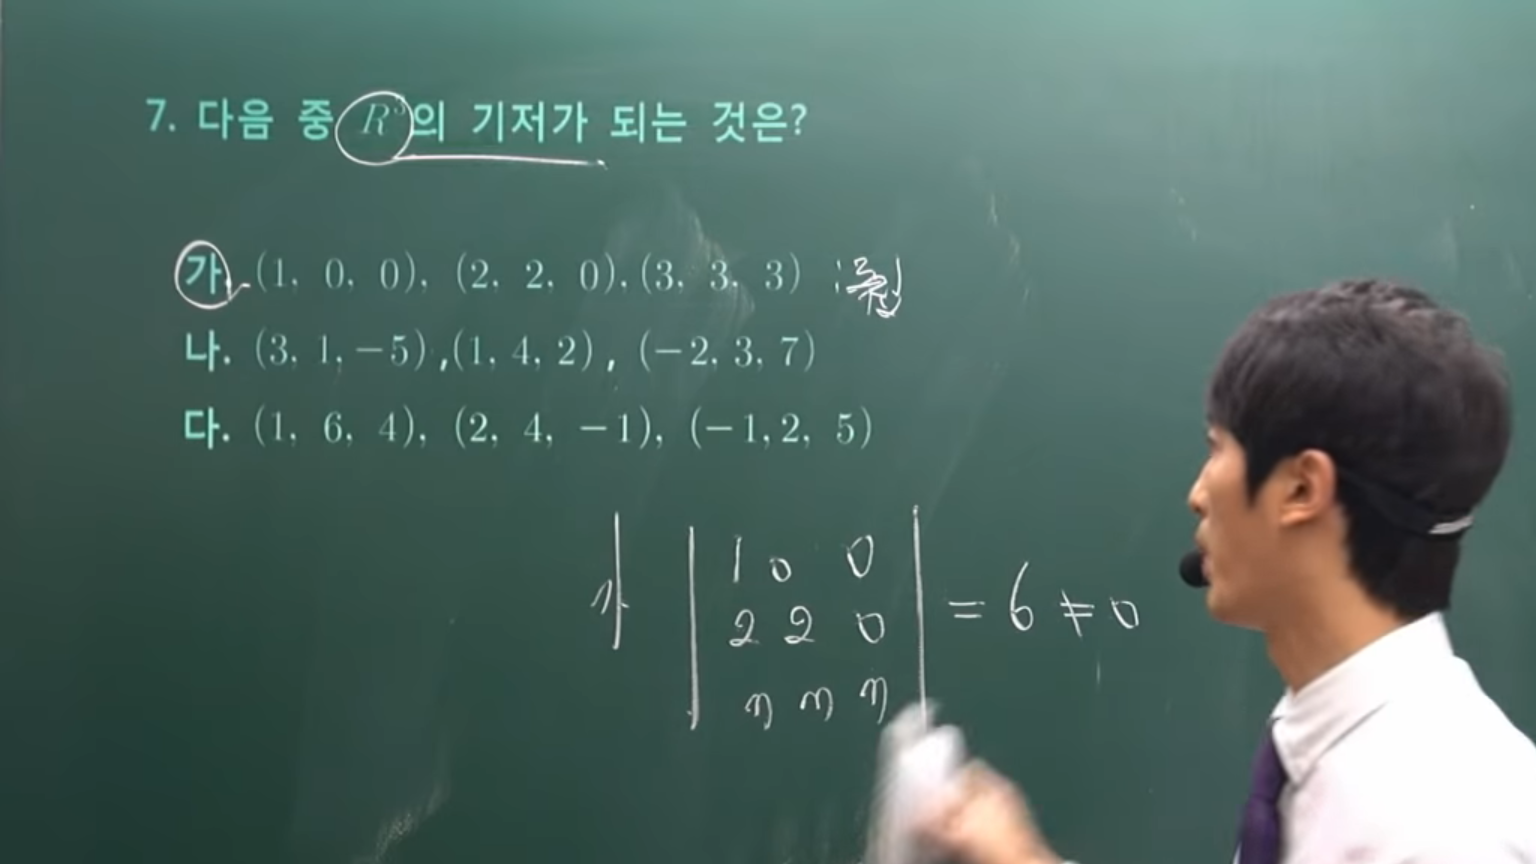 7. 다음 중 R³의 기저가 되는 것은?
가. (1, 0, 0), (2, 2, 0), (3, 3, 3) :
나. (3, 1, -5), (1, 4, 2), (-2, 3, 7)
다. (1, 6, 4), (2, 4, -1), (-1, 2, 5)
| 1 0 0 |
가 | 2 2 0 | = 6 ≠ 0
| 3 3 3 |